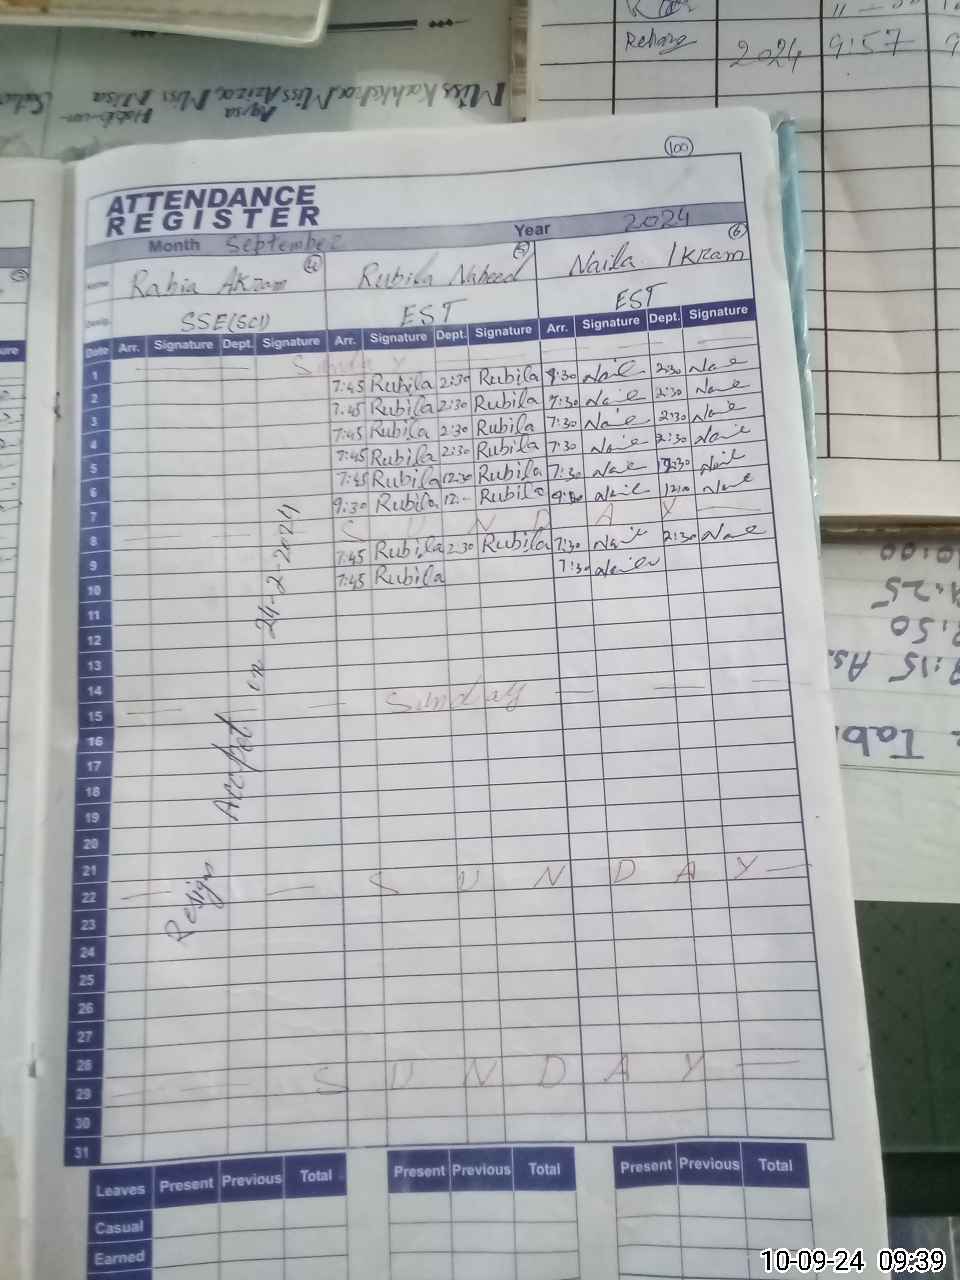 Rehana 2024 9:57
Miss Kahkshan Miss Aziza, Miss Misa
100
ATTENDANCE
REGISTER
Month September Year 2024
Name Rabia Akram 4 Rubila Naheed 5 Naila Ikram 6
Desig. SSE(SCI) EST EST
Date Arr. Signature Dept. Signature Arr. Signature Dept. Signature Arr. Signature Dept. Signature
1 Sunday
2 7:45 Rubila 2:30 Rubila 7:30 2:30
3 7:45 Rubila 2:30 Rubila 7:30 2:30
4 7:45 Rubila 2:30 Rubila 7:30 2:30
5 7:45 Rubila 2:30 Rubila 7:30 2:30
6 7:45 Rubila 12:30 Rubila 7:30 12:30
7 9:30 Rubila 12:- Rubila 12:00
8 S U N D A Y
9 7:45 Rubila 2:30 Rubila 7:30 2:30
10 7:45 Rubila 7:30
11
12
13
14
15 Sunday
16
17
18
19
20
21
22 S U N D A Y
23
24
25
26
27
28
29 S U N D A Y
30
31
Resign Accept on 24-2-2024
Leaves Present Previous Total Present Previous Total Present Previous Total
Casual
Earned
10:00
:25
:50
:15 As.
Tabl
10-09-24 09:39